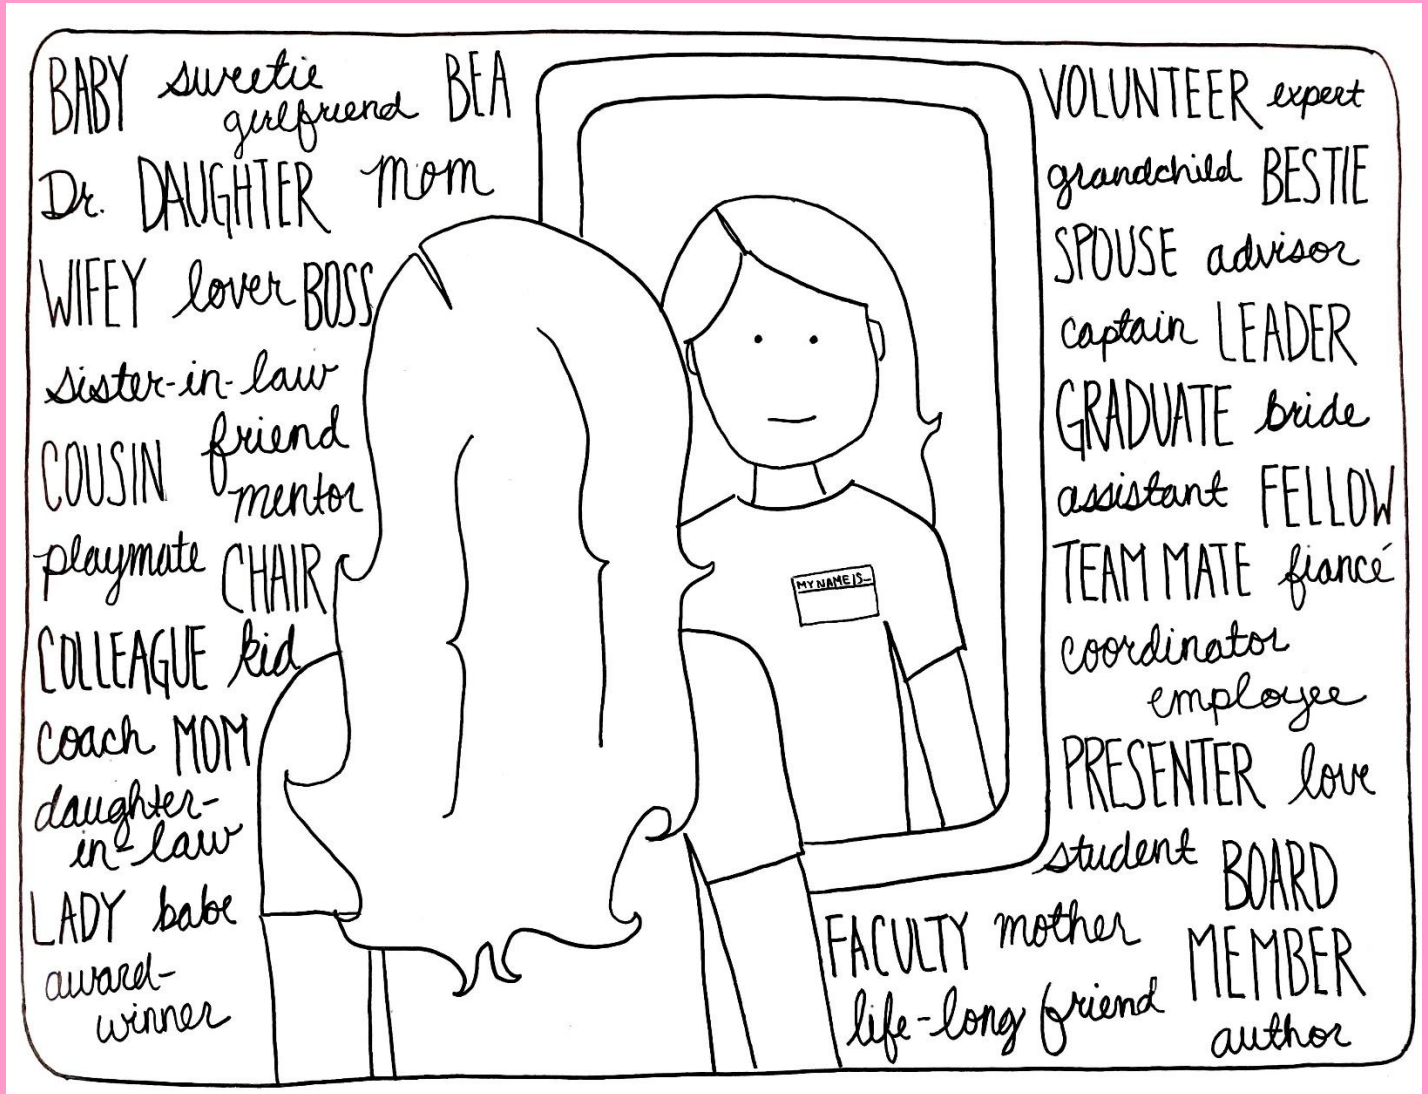 BABY sweetie BEA
girlfriend
Dr. DAUGHTER mom
WIFEY lover BOSS
sister-in-law
COUSIN friend
mentor
playmate CHAIR
COLLEAGUE kid
coach MOM
daughter-
in-law
LADY babe
award-
winner
MY NAME IS
VOLUNTEER expert
grandchild BESTIE
SPOUSE advisor
captain LEADER
GRADUATE bride
assistant FELLOW
TEAM MATE fiancé
coordinator
employee
PRESENTER love
student BOARD
FACULTY mother MEMBER
life-long friend author